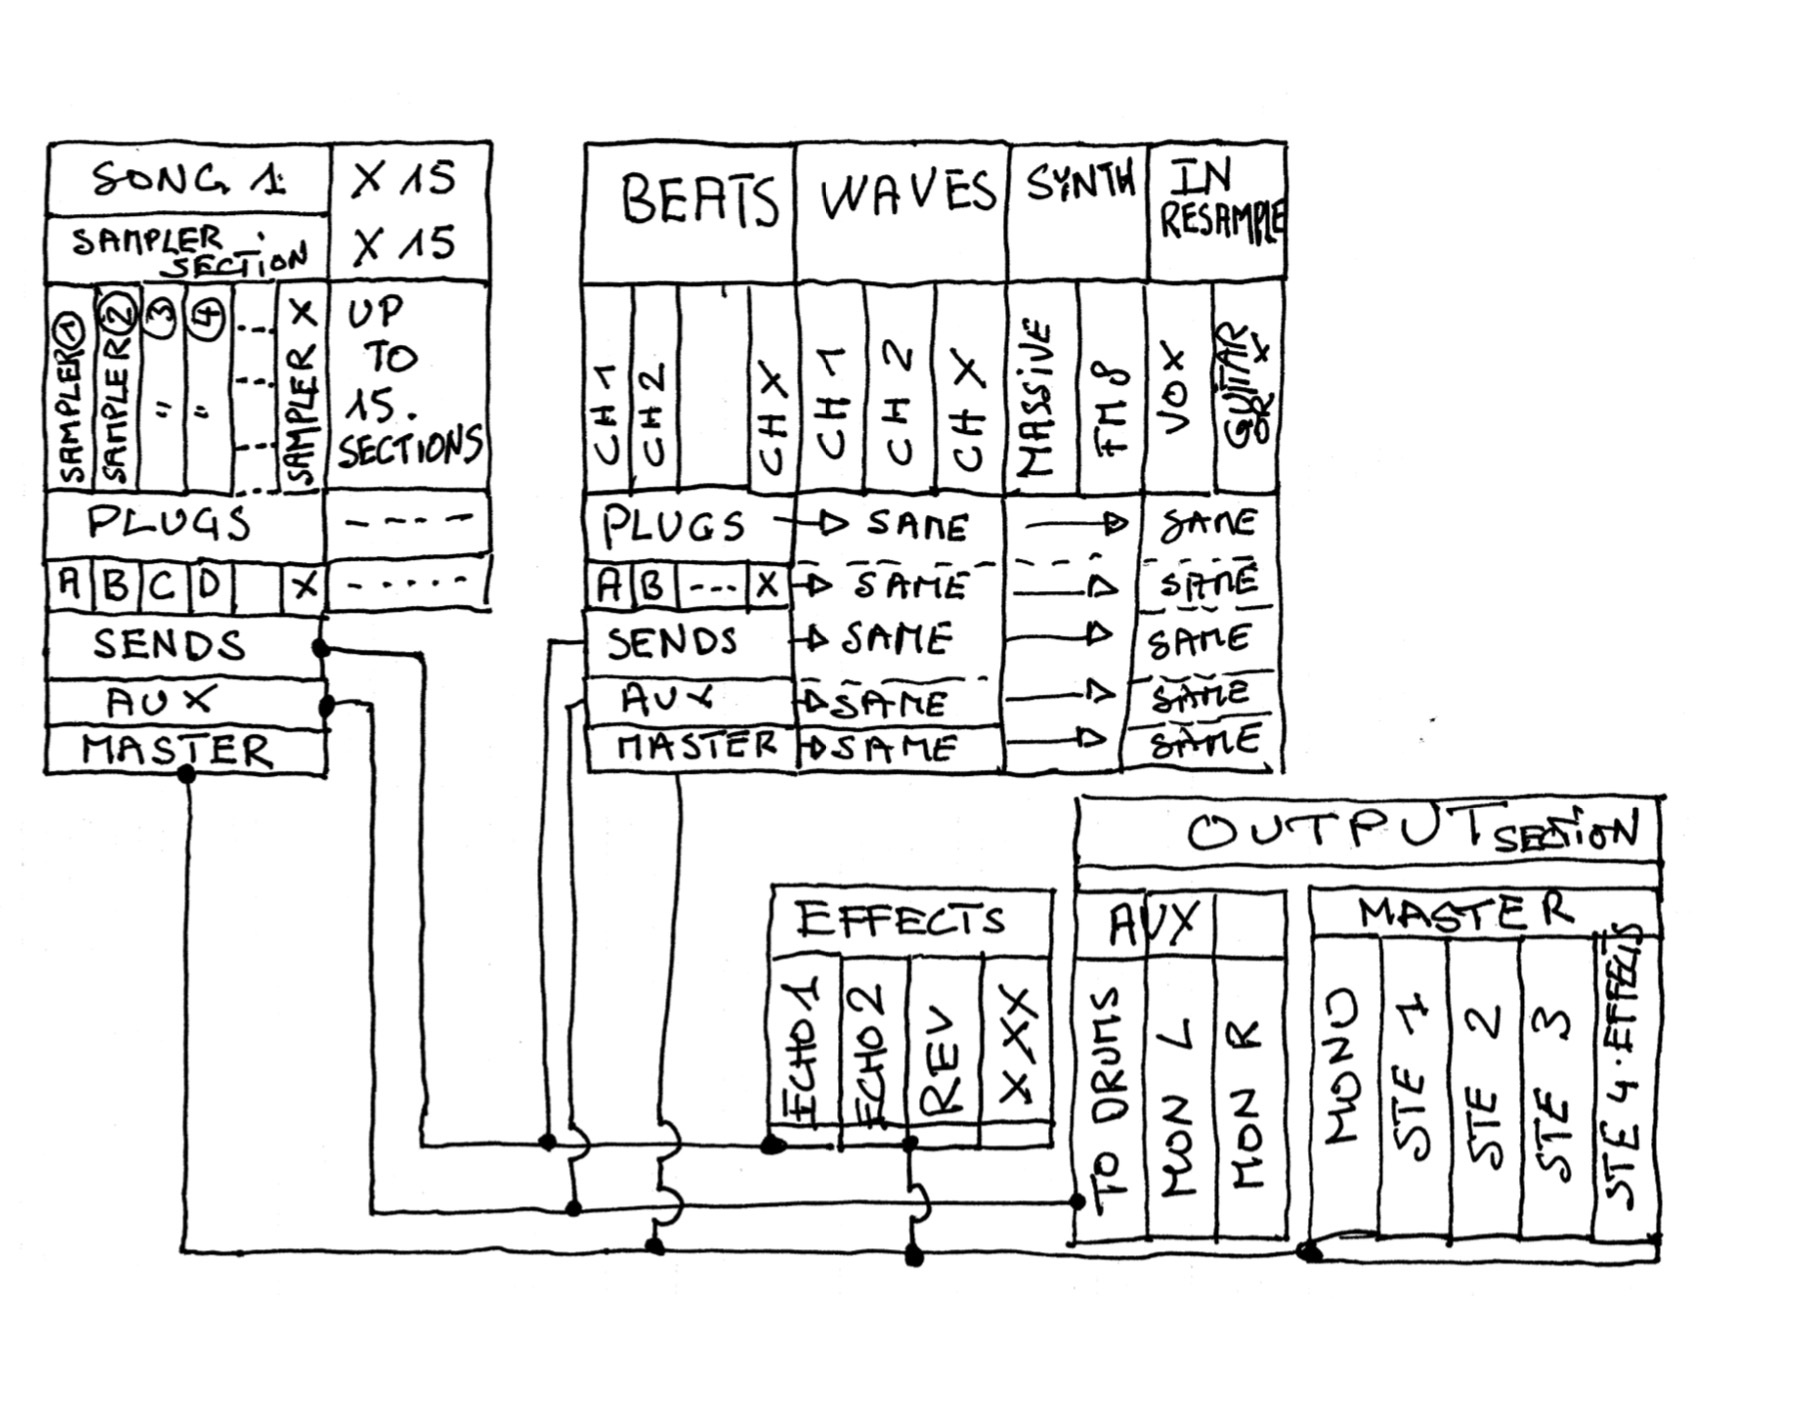 SONG 1
X 15
SAMPLER SECTION
X 15
SAMPLER 1
SAMPLER 2
3 "
4 "
---
---
---
SAMPLER X
UP
TO
15.
SECTIONS
PLUGS
----
A B C D X
-----
SENDS
AUX
MASTER
BEATS
WAVES
SYNTH
IN
RESAMPLE
CH 1
CH 2
CH X
CH 1
CH 2
CH X
MASSIVE
FM 8
VOX
GUITAR
OR X
PLUGS → SAME → SAME
A B --- X → SAME → SAME
SENDS → SAME → SAME
AUX → SAME → SAME
MASTER → SAME → SAME
OUTPUT SECTION
EFFECTS
ECHO1
ECHO2
REV
XXX
AUX
TO DRUMS
MON L
MON R
MASTER
MONO
STE 1
STE 2
STE 3
STE 4.EFFECTS